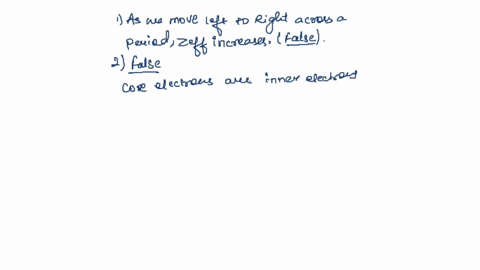 1) As we move left to Right across a
period, Zeff increases. (False).
2) False
Core electrons are inner electrons